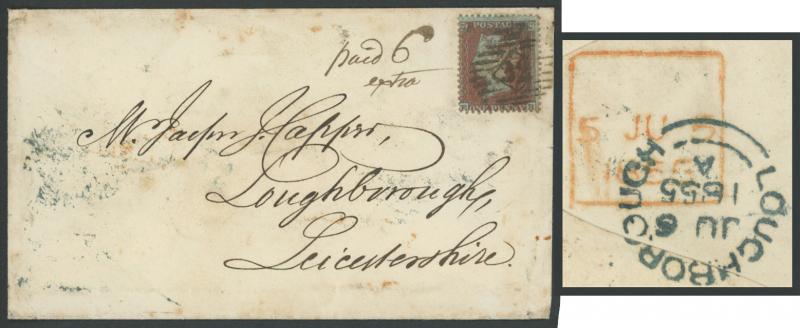 paid 6
extra
POSTAGE
Mr. Jasper J. Capper,
Loughborough,
Leicestershire.
5 JU 5
1855
LOUGHBOROUGH
A
1855
JU 6